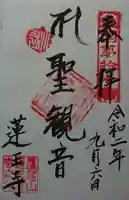 奉拝
聖観音
蓮王寺
令和二年
九月六日